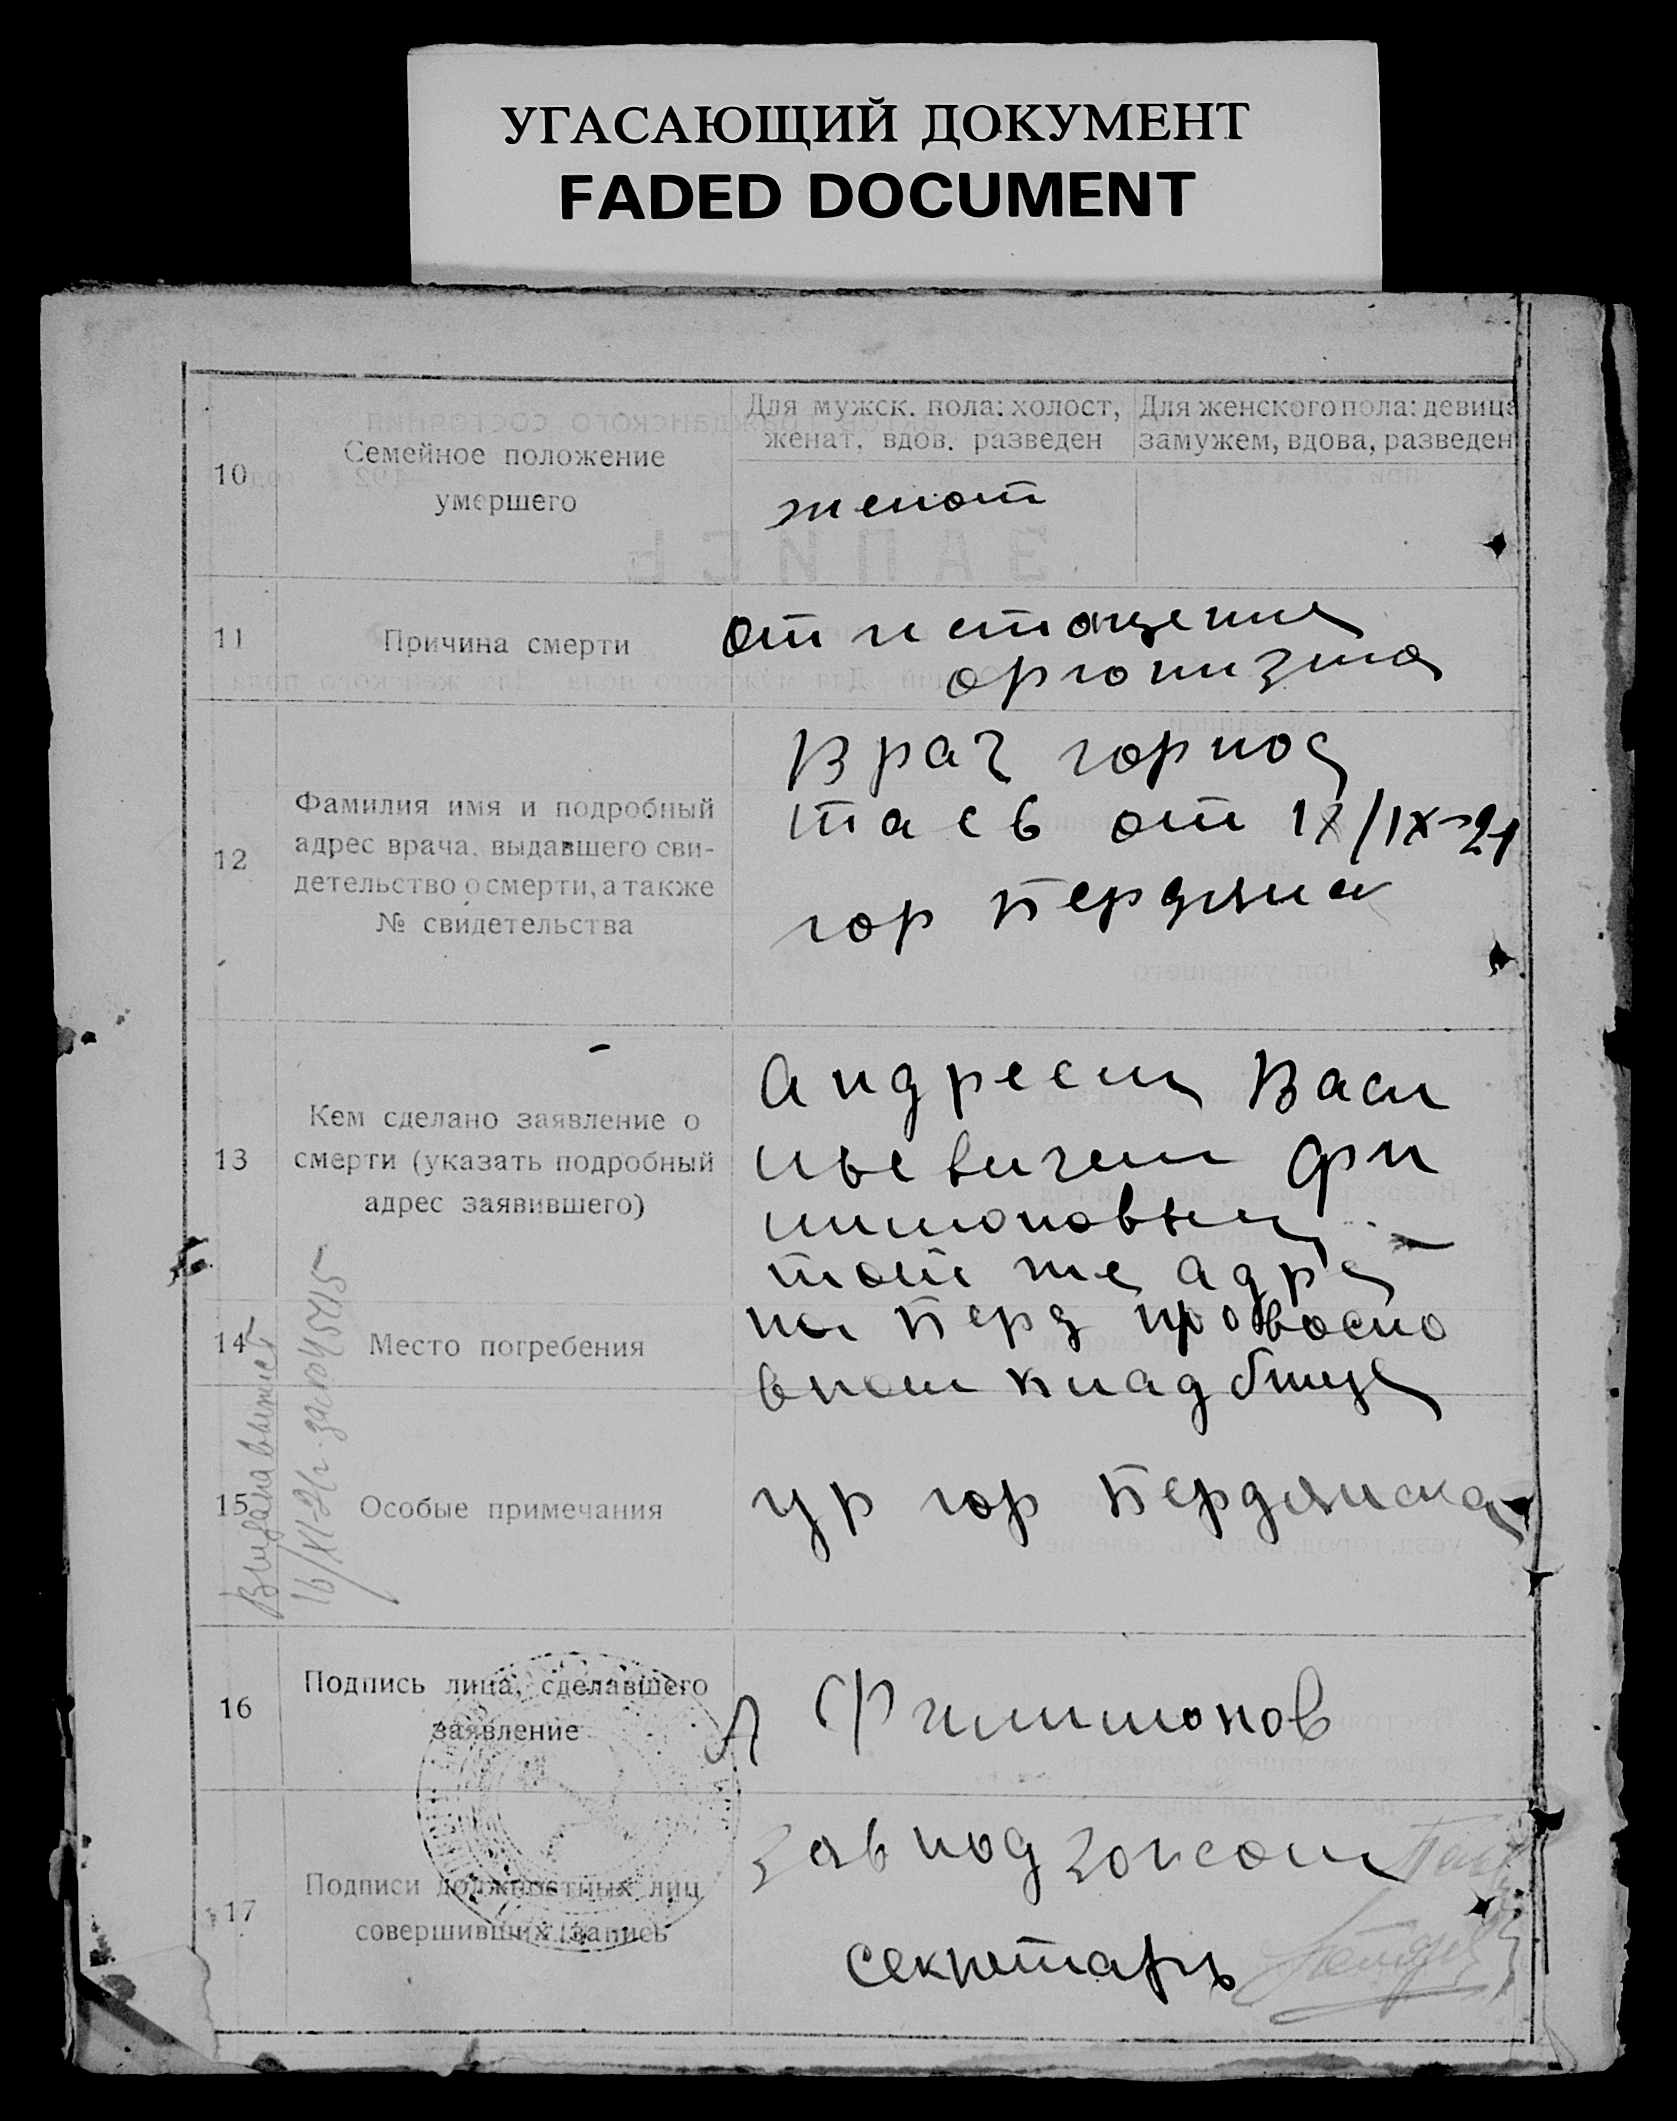 УГАСАЮЩИЙ ДОКУМЕНТ
FADED DOCUMENT
Для мужск. пола: холост,
женат, вдов. разведен
Для женского пола: девица
замужем, вдова, разведен
10
Семейное положение
умершего
женат
11
Причина смерти
от истощения
организма
12
Фамилия имя и подробный
адрес врача, выдавшего сви-
детельство о смерти, а также
№ свидетельства
Врач
от /IX-21
гор Бердянск
13
Кем сделано заявление о
смерти (указать подробный
адрес заявившего)
Андреем Васи
льевичем Фи
лимоновым
тот же адрес
14
Место погребения
на Берд православ
ном кладбище
15
Особые примечания
гор Бердянска
Выдана выпись
16/XI-21г.
16
Подпись лица, сделавшего
заявление
А Филимонов
17
Подписи должностных лиц
совершивших запись
Зав под
секретарь